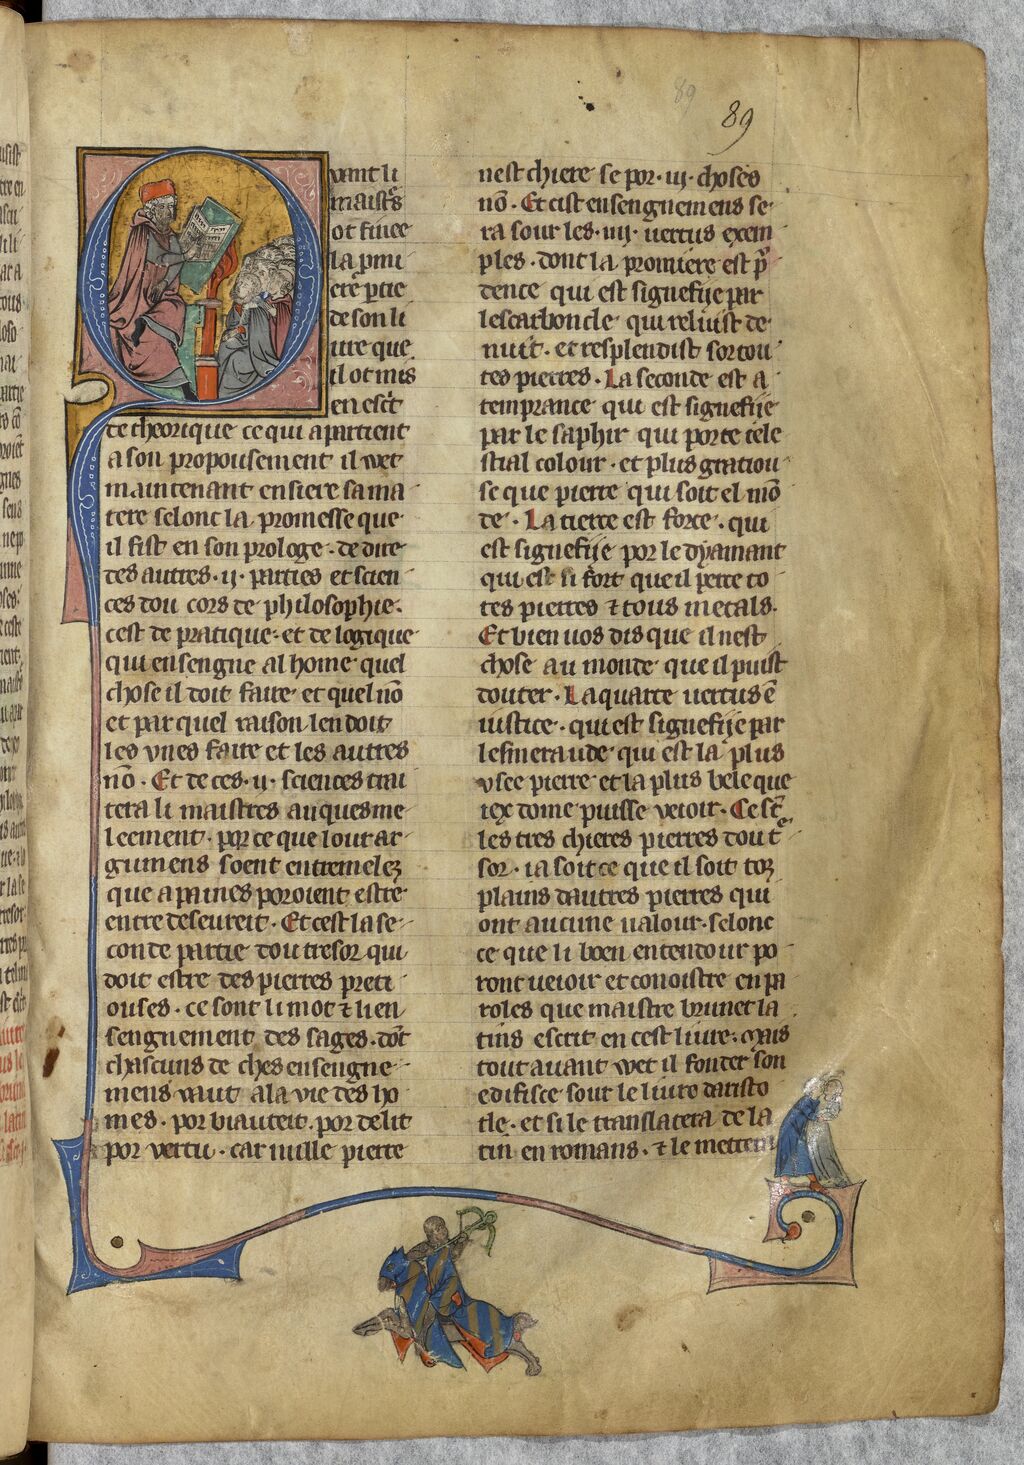 89
89
Quant li
maistˢ
ot finee
la pmi
ere ptie
de son li
ure que
il ot mis
en esc͛t
te theorique ce qui apartient
a son propousement il wet
maintenant ensiere sa ma
tere selonc la promesse que
il fist en son prologe. de dire
des autres .ii. parties et scien
ces dou cors de philosophie.
cest de pratique. et de logique
qui ensengne al home quel
chose il doit faire et quel nō
et par quel raison len doit
les vnes faire et les autres
nō. Et de ces .ii. sciences trai
tera li maistres auques me
leement. por ce que lour ar
gumens soent entremelez
que a paines poroient estre
entre deseureit. Et cest la se
conde partie dou tresor qui
doit estre des pierres preti
ouses. ce sont li mot ⁊ li en
sengnement des sages. dōt
chascuns de ches ensengne
mens vaut a la vie des ho
mes. por biauteit. por delit
por vertu. car nulle pierre
nest chiere se por .iij. choses
nō. Et cist ensengnemens se
ra sour les .iiij. uertus exem
ples. dont la promiere est p̄
dence qui est signefije par
lescarboncle qui reluist de
nuit. et resplendist sor tou
tes pierres. La seconde est a
temprance qui est signefije
par le saphir qui porte cele
stial colour. et plus gratiou
se que pierre qui soit el mō
de. La tierce est force. qui
est signefije por le dyamant
qui est si fort que il perce to
tes pierres ⁊ tous metals.
Et bien uos dis que il nest
chose au monde que il puist
douter. La quarte uertus ē
iustice. qui est signefije par
lesmeraude qui est la plus
vsee pierre et la plus bele que
iex dome puisse veoir. Ce sēt
les tres chieres pierres dou t̄
sor. ia soit ce que il soit toz
plains dautres pierres qui
ont aucune ualour. selonc
ce que li boen entendour po
ront ueioir et conoistre en pa
roles que maistre brunet la
tins escrit en cest liure. Mais
tout auant wet il fonder son
edifisce sour le liure daristo
tle. et si le translatera de la
tin en romans. ⁊ le mettera